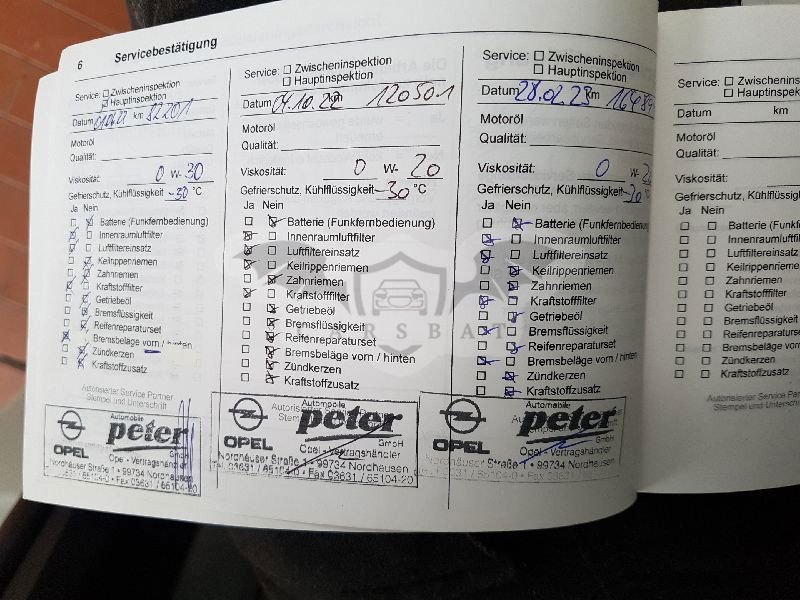 6 Servicebestätigung
Service: Zwischeninspektion
Hauptinspektion
Datum km 82201
Motoröl
Qualität:
Viskosität: 0 W-30
Gefrierschutz, Kühlflüssigkeit -30 °C
Ja Nein
Batterie (Funkfernbedienung)
Innenraumluftfilter
Luftfiltereinsatz
Keilrippenriemen
Zahnriemen
Kraftstofffilter
Getriebeöl
Bremsflüssigkeit
Reifenreparaturset
Bremsbeläge vorn / hinten
Zündkerzen
Kraftstoffzusatz
Autorisierter Service Partner
Stempel und Unterschrift
Automobile
peter
GmbH
OPEL Opel - Vertragshändler
Nordhäuser Straße 1 • 99734 Nordhausen
03631 / 65104-0 • Fax 03631 / 65104-20
Service: Zwischeninspektion
Hauptinspektion
Datum 04.10.22 km 120501
Motoröl
Qualität:
Viskosität: 0 W- 20
Gefrierschutz, Kühlflüssigkeit -30 °C
Ja Nein
Batterie (Funkfernbedienung)
Innenraumluftfilter
Luftfiltereinsatz
Keilrippenriemen
Zahnriemen
Kraftstofffilter
Getriebeöl
Bremsflüssigkeit
Reifenreparaturset
Bremsbeläge vorn / hinten
Zündkerzen
Kraftstoffzusatz
Automobile
peter
GmbH
OPEL Opel - Vertragshändler
Nordhäuser Straße 1 • 99734 Nordhausen
Tel. 03631 / 65104-0 • Fax 03631 / 65104-20
Service: Zwischeninspektion
Hauptinspektion
Datum 28.02.23 km
Motoröl
Qualität:
Viskosität: 0 W-
Gefrierschutz, Kühlflüssigkeit -30 °C
Ja Nein
Batterie (Funkfernbedienung)
Innenraumluftfilter
Luftfiltereinsatz
Keilrippenriemen
Zahnriemen
Kraftstofffilter
Getriebeöl
Bremsflüssigkeit
Reifenreparaturset
Bremsbeläge vorn / hinten
Zündkerzen
Kraftstoffzusatz
Automobile
peter
GmbH
OPEL Opel - Vertragshändler
Nordhäuser Straße 1 • 99734 Nordhausen
Service: Zwischenins
Hauptinspekt
Datum km
Motoröl
Qualität:
Viskosität:
Gefrierschutz, Kühlflüssig
Ja Nein
Batterie (Funkf
Innenraumluftfi
Luftfiltereinsatz
Keilrippenrieme
Zahnriemen
Kraftstofffilter
Getriebeöl
Bremsflüssigkei
Reifenreparatur
Bremsbeläge vo
Zündkerzen
Kraftstoffzusatz
Autorisierter Service
Stempel und Untersch